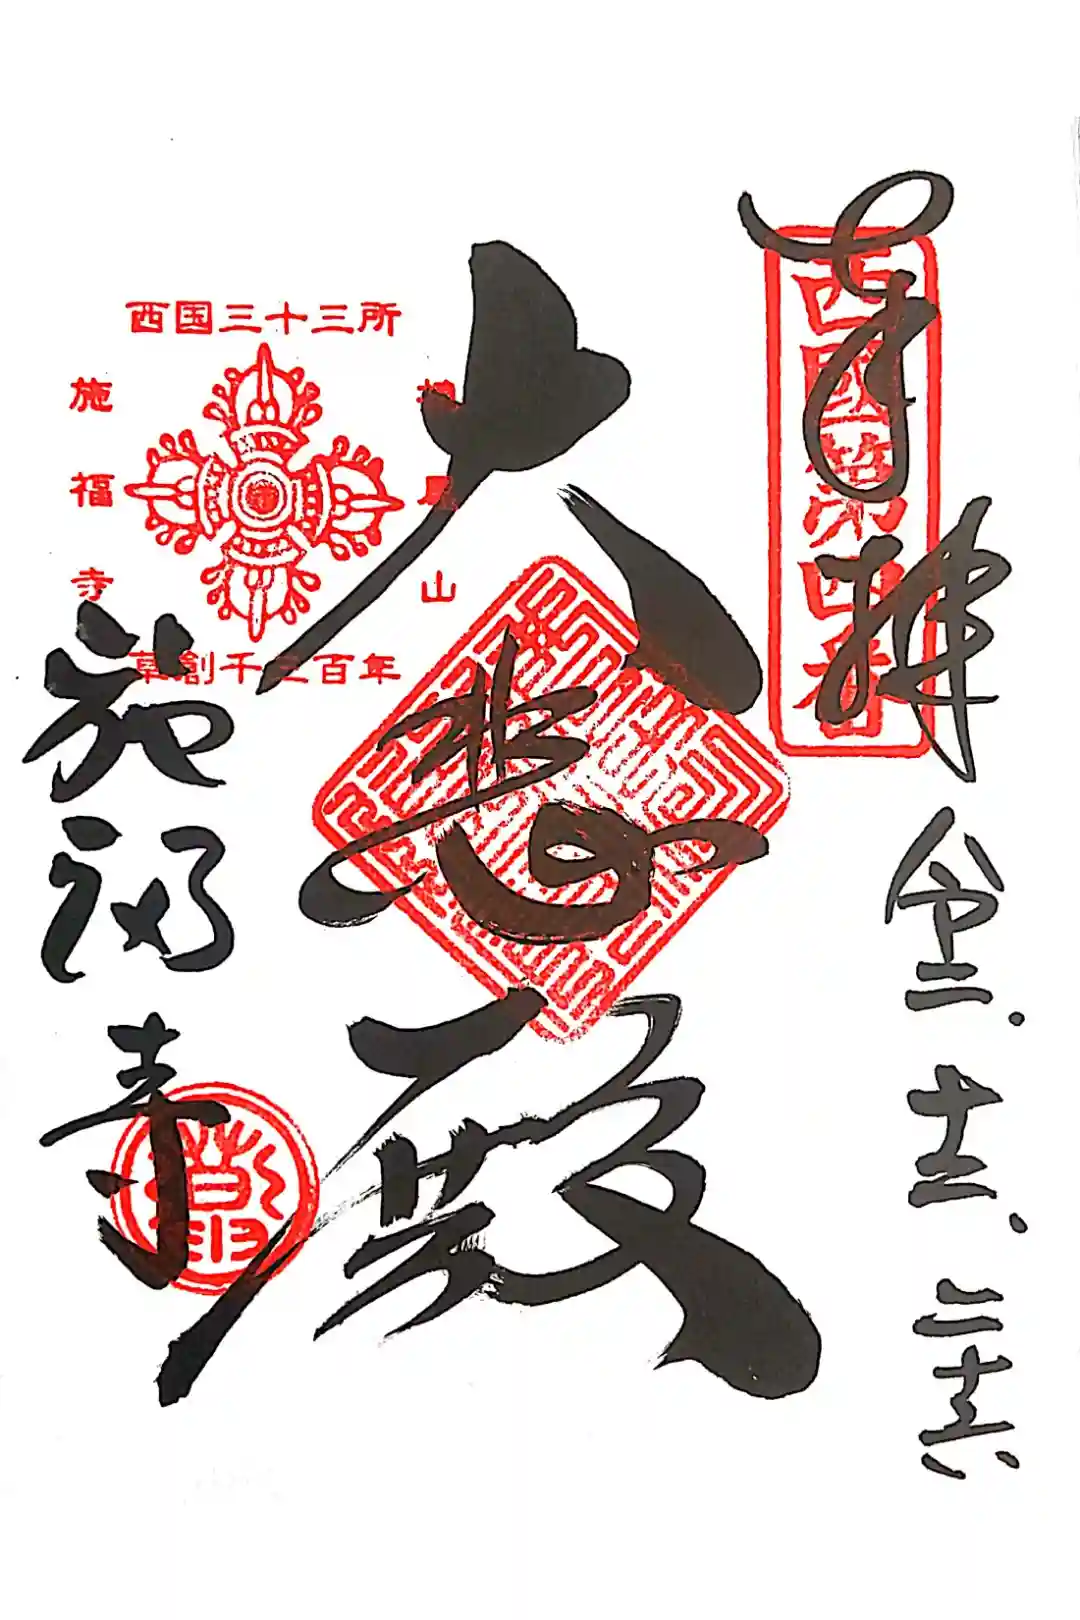 奉拝
令二.十二.二十六
西國第四番
大悲殿
西国三十三所
山
施福寺
草創千三百年
施福寺